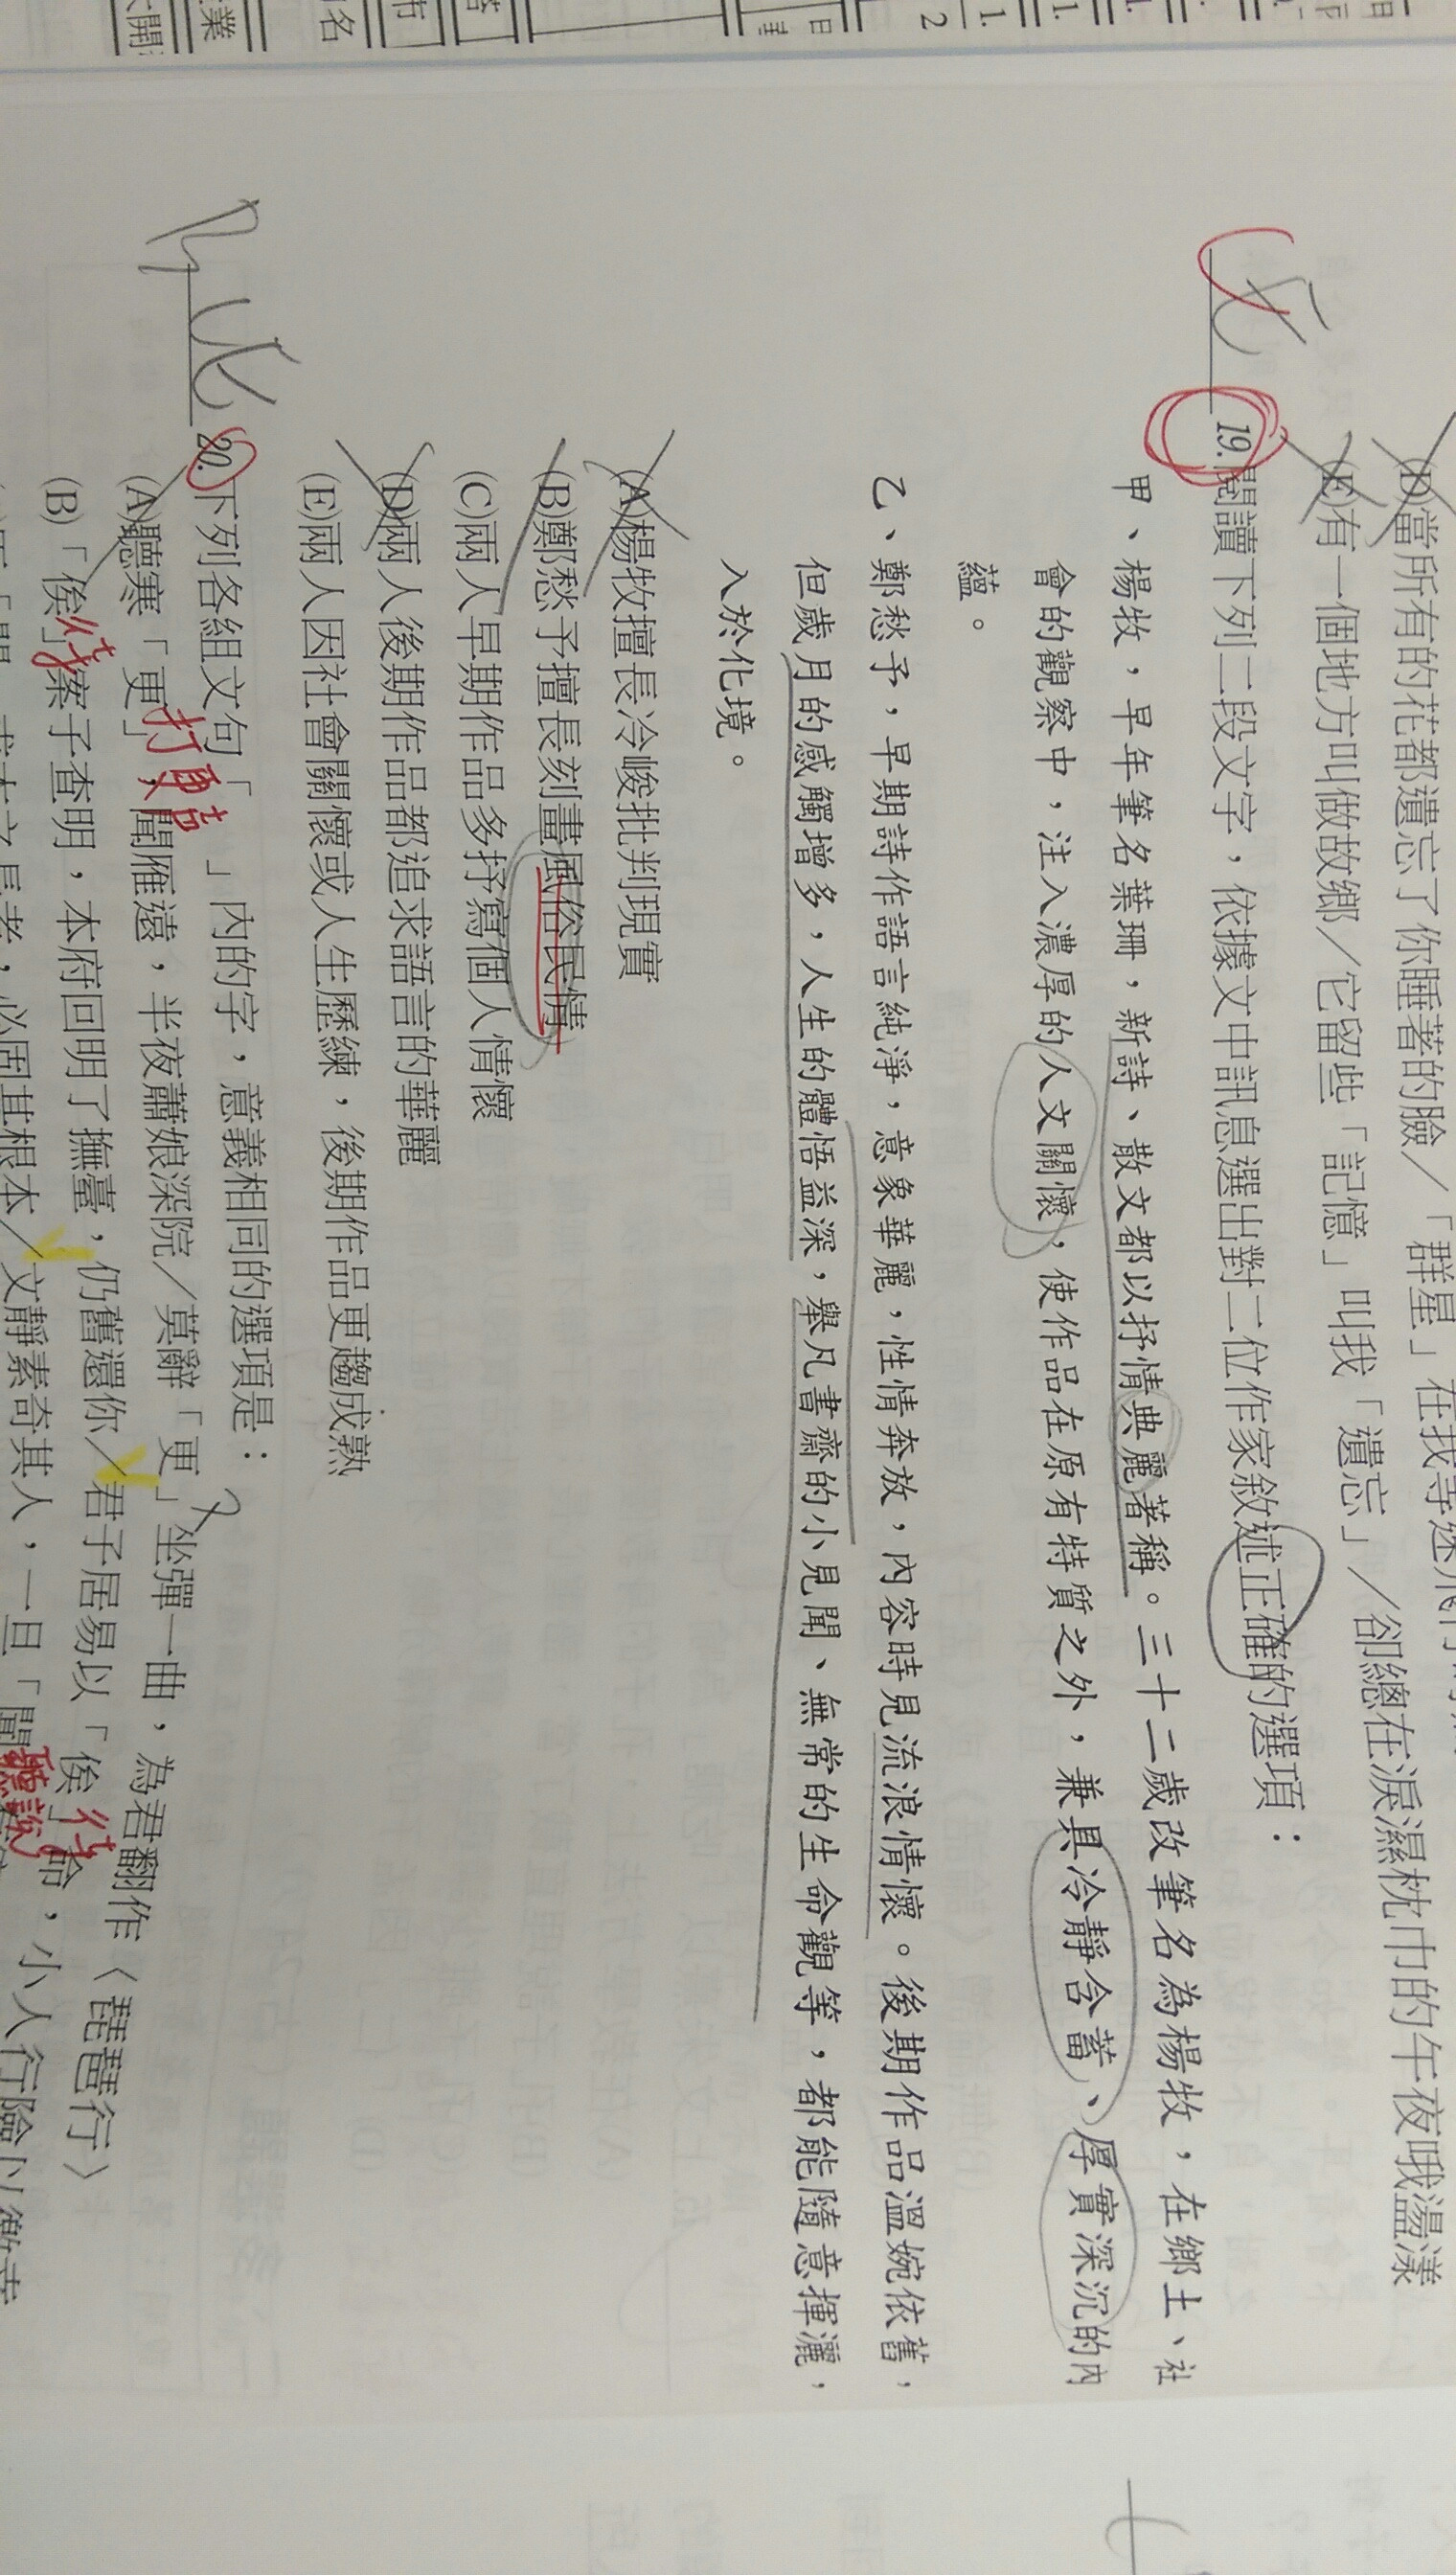 (D)當所有的花都遺忘了你睡著的臉／「群星」在找尋
(E)有一個地方叫做故鄉／它留些「記憶」叫我「遺忘」／卻總在淚濕枕巾的午夜哦盪漾
19.閱讀下列二段文字，依據文中訊息選出對二位作家敘述正確的選項：
甲、楊牧，早年筆名葉珊，新詩、散文都以抒情典麗著稱。三十二歲改筆名為楊牧，在鄉土、社
會的觀察中，注入濃厚的人文關懷，使作品在原有特質之外，兼具冷靜含蓄、厚實深沉的內
蘊。
乙、鄭愁予，早期詩作語言純淨，意象華麗，性情奔放，內容時見流浪情懷。後期作品溫婉依舊，
但歲月的感觸增多，人生的體悟益深，舉凡書齋的小見聞、無常的生命觀等，都能隨意揮灑，
入於化境。
(A)楊牧擅長冷峻批判現實
(B)鄭愁予擅長刻畫風俗民情
(C)兩人早期作品多抒寫個人情懷
(D)兩人後期作品都追求語言的華麗
(E)兩人因社會關懷或人生歷練，後期作品更趨成熟
20.下列各組文句「 」內的字，意義相同的選項是：
(A)聽寒「更」，聞雁遠，半夜蕭娘深院／莫辭「更」坐彈一曲，為君翻作〈琵琶行〉
打更音
(B)「俟」案子查明，本府回明了撫臺，仍舊還你／君子居易以「俟」命，小人行險以徼幸
待
待
必固其根本／文靜素奇其人，一旦「聞
聽說